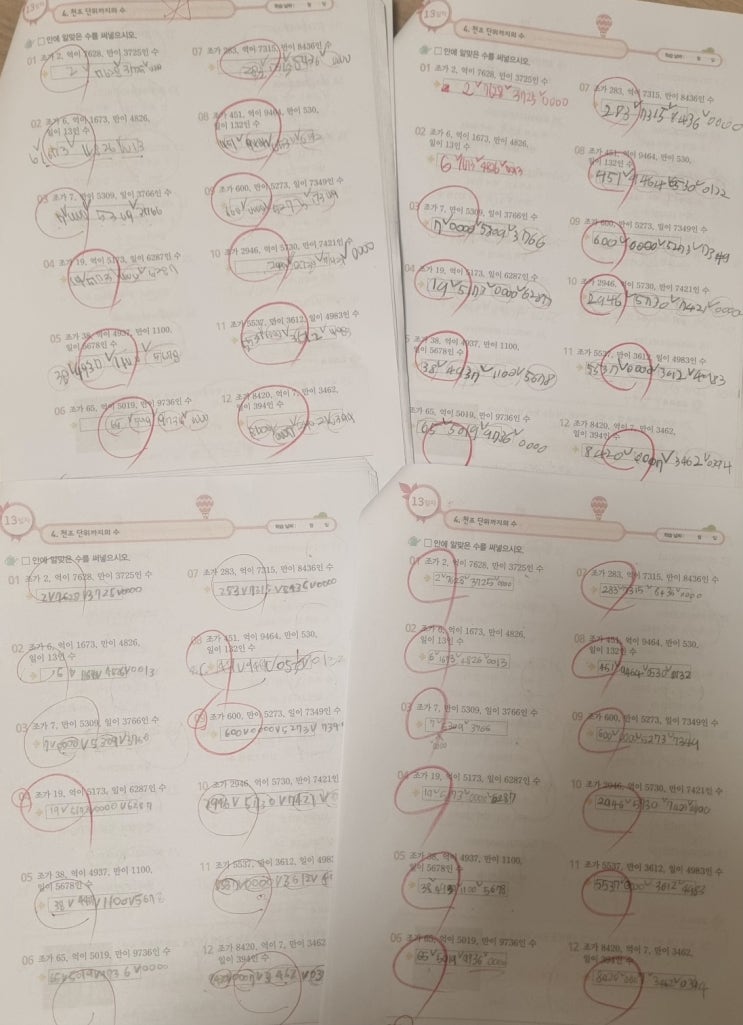 13일차
4. 천조 단위까지의 수
□ 안에 알맞은 수를 써넣으시오.
01 조가 2, 억이 7628, 만이 3725인 수
02 조가 6, 억이 1673, 만이 4826,
일이 13인 수
03 조가 7, 만이 5309, 일이 3766인 수
04 조가 19, 억이 5173, 일이 6287인 수
05 조가 38, 억이 4937, 만이 1100,
일이 5678인 수
06 조가 65, 억이 5019, 만이 9736인 수
07 조가 283, 억이 7315, 만이 8436인 수
08 조가 451, 억이 9464, 만이 530,
일이 132인 수
09 조가 600, 만이 5273, 일이 7349인 수
10 조가 2946, 억이 5730, 만이 7421인 수
0000
11 조가 5537, 만이 3612, 일이 4983인 수
12 조가 8420, 억이 7, 만이 3462,
일이 394인 수
13일차
4. 천조 단위까지의 수
□ 안에 알맞은 수를 써넣으시오.
01 조가 2, 억이 7628, 만이 3725인 수
2 7628 3725 0000
02 조가 6, 억이 1673, 만이 4826,
일이 13인 수
6 1673 4826 0013
03 조가 7, 만이 5309, 일이 3766인 수
7 0000 5309 3766
04 조가 19, 억이 5173, 일이 6287인 수
19 5173 0000 6287
5 조가 38, 억이 4937, 만이 1100,
일이 5678인 수
38 4937 1100 5678
조가 65, 억이 5019, 만이 9736인 수
65 5019 9736 0000
07 조가 283, 억이 7315, 만이 8436인 수
283 7315 8436 0000
08 조가 451, 억이 9464, 만이 530,
일이 132인 수
451 9464 0530 0132
09 조가 600, 만이 5273, 일이 7349인 수
600 0000 5273 7349
10 조가 2946, 억이 5730, 만이 7421인 수
2946 5730 7421 0000
11 조가 5537, 만이 3612, 일이 4983인 수
5537 0000 3612 4983
12 조가 8420, 억이 7, 만이 3462,
일이 394인 수
8420 0007 3462 0394
13일차
4. 천조 단위까지의 수
학습 날짜 월 일
□ 안에 알맞은 수를 써넣으시오.
01 조가 2, 억이 7628, 만이 3725인 수
2V7628V3725V0000
02 조가 6, 억이 1673, 만이 4826,
일이 13인 수
03 조가 7, 만이 5309, 일이 3766인 수
04 조가 19, 억이 5173, 일이 6287인 수
19V5173V0000V6287
05 조가 38, 억이 4937, 만이 1100,
일이 5678인 수
06 조가 65, 억이 5019, 만이 9736인 수
65V5019V9736V0000
07 조가 283, 억이 7315, 만이 8436인 수
08 조가 451, 억이 9464, 만이 530,
일이 132인 수
09 조가 600, 만이 5273, 일이 7349인 수
600V0000V5273V7349
10 조가 2946, 억이 5730, 만이 7421인
11 조가 5537, 만이 3612, 일이 498
12 조가 8420, 억이 7, 만이 3462
일이 394인 수
13일차
4. 천조 단위까지의 수
학습 날짜 월 일
□ 안에 알맞은 수를 써넣으시오.
01 조가 2, 억이 7628, 만이 3725인 수
02 조가 6, 억이 1673, 만이 4826,
일이 13인 수
6 1673 4826 0013
03 조가 7, 만이 5309, 일이 3766인 수
7 5309 3766
0000
04 조가 19, 억이 5173, 일이 6287인 수
19 5173 0000 6287
05 조가 38, 억이 4937, 만이 1100,
일이 5678인 수
38 4937 1100 5678
06 조가 65, 억이 5019, 만이 9736인 수
65 5019 9736 0000
07 조가 283, 억이 7315, 만이 8436인 수
08 조가 451, 억이 9464, 만이 530,
일이 132인 수
451 9464 0530 0132
09 조가 600, 만이 5273, 일이 7349인 수
600 0000 5273 7349
10 조가 2946, 억이 5730, 만이 7421인 수
2946 5730 7421 0000
11 조가 5537, 만이 3612, 일이 4983인 수
5537 0000 3612 4983
12 조가 8420, 억이 7, 만이 3462,
일이 394인 수
8420 0007 3462 0394